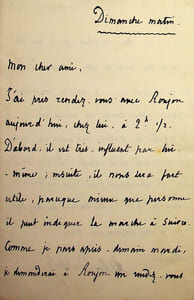 Dimanche matin.
Mon cher ami,
J'ai pris rendez-vous avec Roujon
aujourd'hui, chez lui, à 2h 1/2.
D'abord, il est très influent par lui-
-même; ensuite, il nous sera fort
utile, parceque mieux que personne
il peut indiquer la marche à suivre.
Comme je pars après-demain mardi,
je demanderai à Roujon un rendez-vous